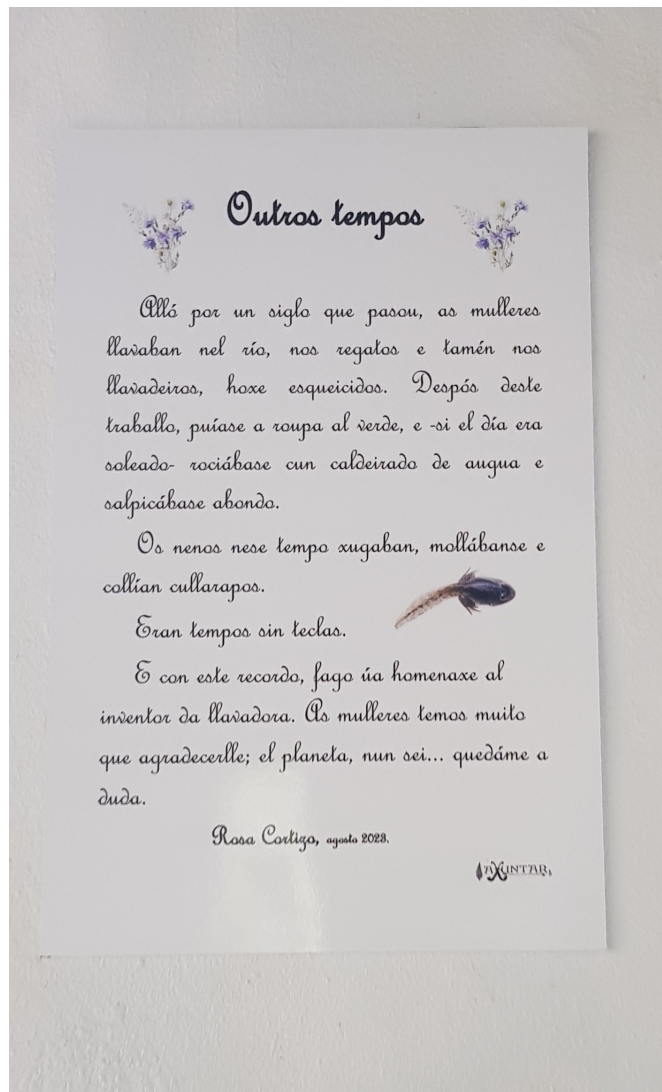 Outros tempos
Alló por un siglo que pasou, as mulleres
llavaban nel río, nos regatos e tamén nos
llavadeiros, hoxe esqueicidos. Despós deste
traballo, puíase a roupa al verde, e -si el día era
soleado- rociábase cun caldeirado de augua e
salpicábase abondo.
Os nenos nese tempo xugaban, mollábanse e
collían cullarapos.
Eran tempos sin teclas.
E con este recordo, fago úa homenaxe al
inventor da llavadora. As mulleres temos muito
que agradecerlle; el planeta, nun sei... quedáme a
duda.
Rosa Cortizo, agosto 2023.
AXUNTAR